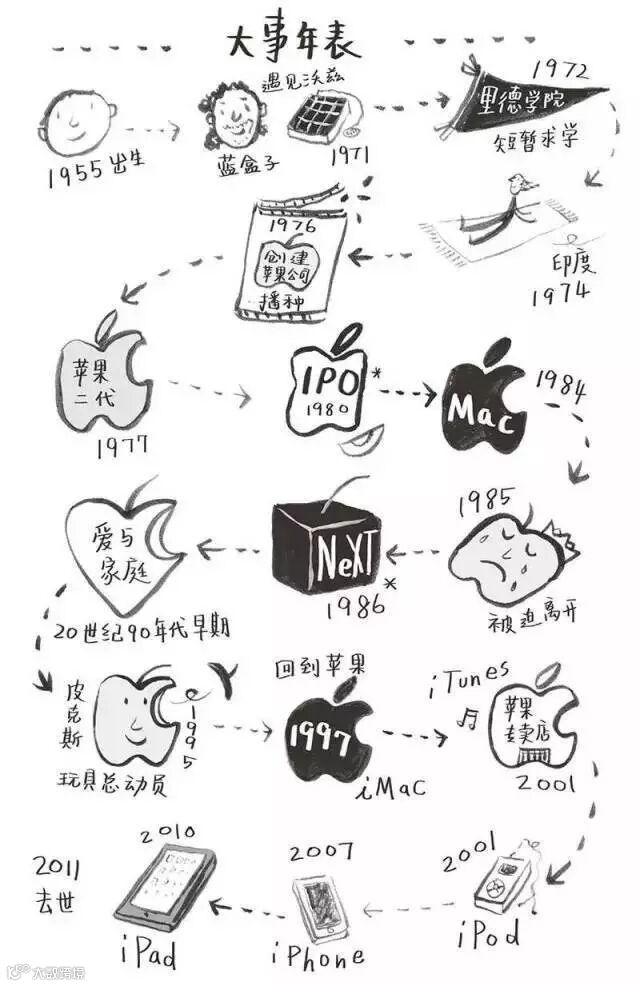 大事年表
遇见沃兹
1955出生
蓝盒子
1971
1972
里德学院
短暂求学
印度
1974
1976
创建
苹果公司
播种
苹果
二代
1977
IPO*
1980
Mac
1984
1985
被迫离开
NeXT
1986*
爱与
家庭
20世纪90年代早期
皮克斯
1995
玩具总动员
回到苹果
1997
iMac
iTunes
苹果
专卖店
2001
2001
iPod
2007
iPhone
2010
iPad
2011
去世
大数跨境